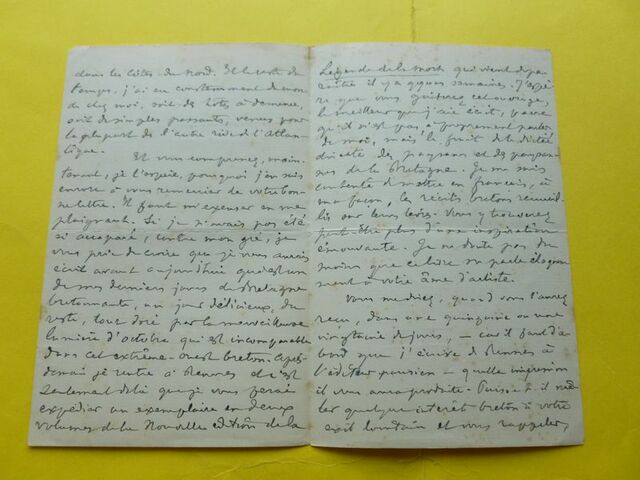 dans les Côtes-du-Nord. Et le reste du
temps, j'ai eu constamment du monde
chez moi, soit des hôtes à demeure,
soit de simples passants, venus pour
la plupart de l'autre rive de l'Atlan-
tique.
Et vous comprenez, main-
tenant, je l'espère, pourquoi j'en suis
encore à vous remercier de votre bon-
ne lettre. Il faut m'excuser en me
plaignant. Si je n'avais pas été
si accaparé, contre mon gré, je
vous prie de croire que je vous aurais
écrit avant aujourd'hui qui est un
de mes derniers jours de Bretagne
bretonnante, un jour délicieux, du
reste, tout doré par la merveilleuse
lumière d'octobre qui est incomparable
dans cet extrême-ouest breton. Après-
demain je rentre à Rennes et c'est
seulement de là que je vous ferai
expédier un exemplaire en deux
volumes de la Nouvelle édition de la
Légende de la Mort qui vient de pa-
raître il y a qques semaines. J'espè-
re que vous goûterez cet ouvrage,
le meilleur que j'aie écrit, parce
qu'il n'est pas, à proprement parler
de moi, mais le fruit de la dictée
directe des paysans et des paysan-
nes de la Bretagne. Je me suis
contenté de mettre en français, à
ma façon, les récits bretons recueil-
lis sur leurs lèvres. Vous y trouverez
peut-être plus d'une inspiration
émouvante. Je ne doute pas du
moins que ce livre ne parle éloquem-
ment à votre âme d'artiste.
Vous me direz, quand vous l'aurez
reçu, dans une quinzaine ou une
vingtaine de jours, — car il faut d'a-
bord que j'écrive de Rennes à
l'éditeur parisien — quelle impression
il vous aura produite. Puisse-t-il mê-
ler quelque intérêt breton à votre
exil lointain et vous rappeler,